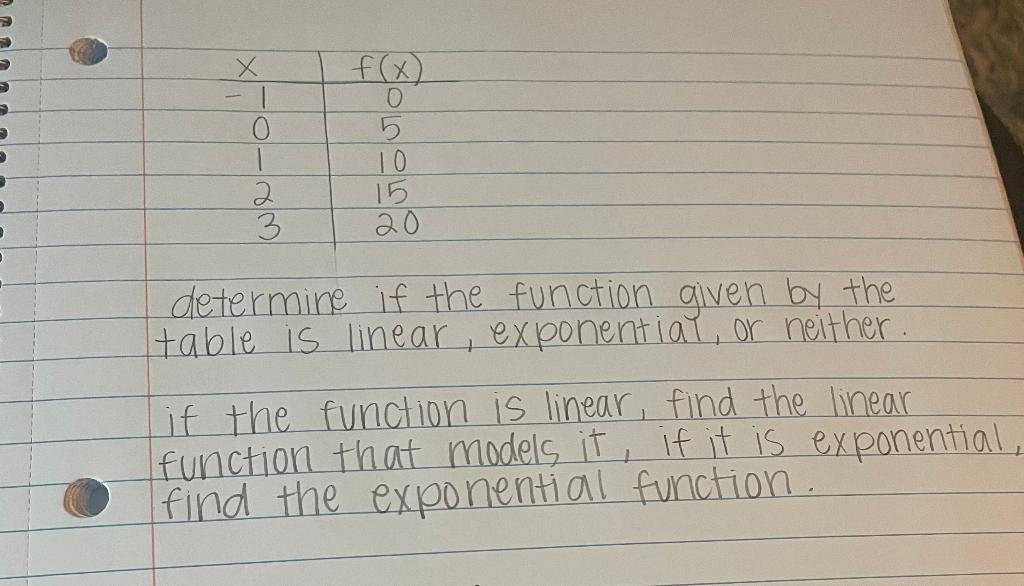 x f(x)
-1 0
0 5
1 10
2 15
3 20
determine if the function given by the
table is linear, exponential, or neither.
if the function is linear, find the linear
function that models it, if it is exponential,
find the exponential function.